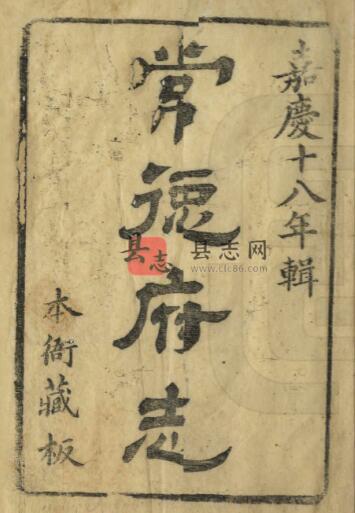 嘉慶十八年輯
常德府志
本衙藏板
县志
县志网
www.clc86.com